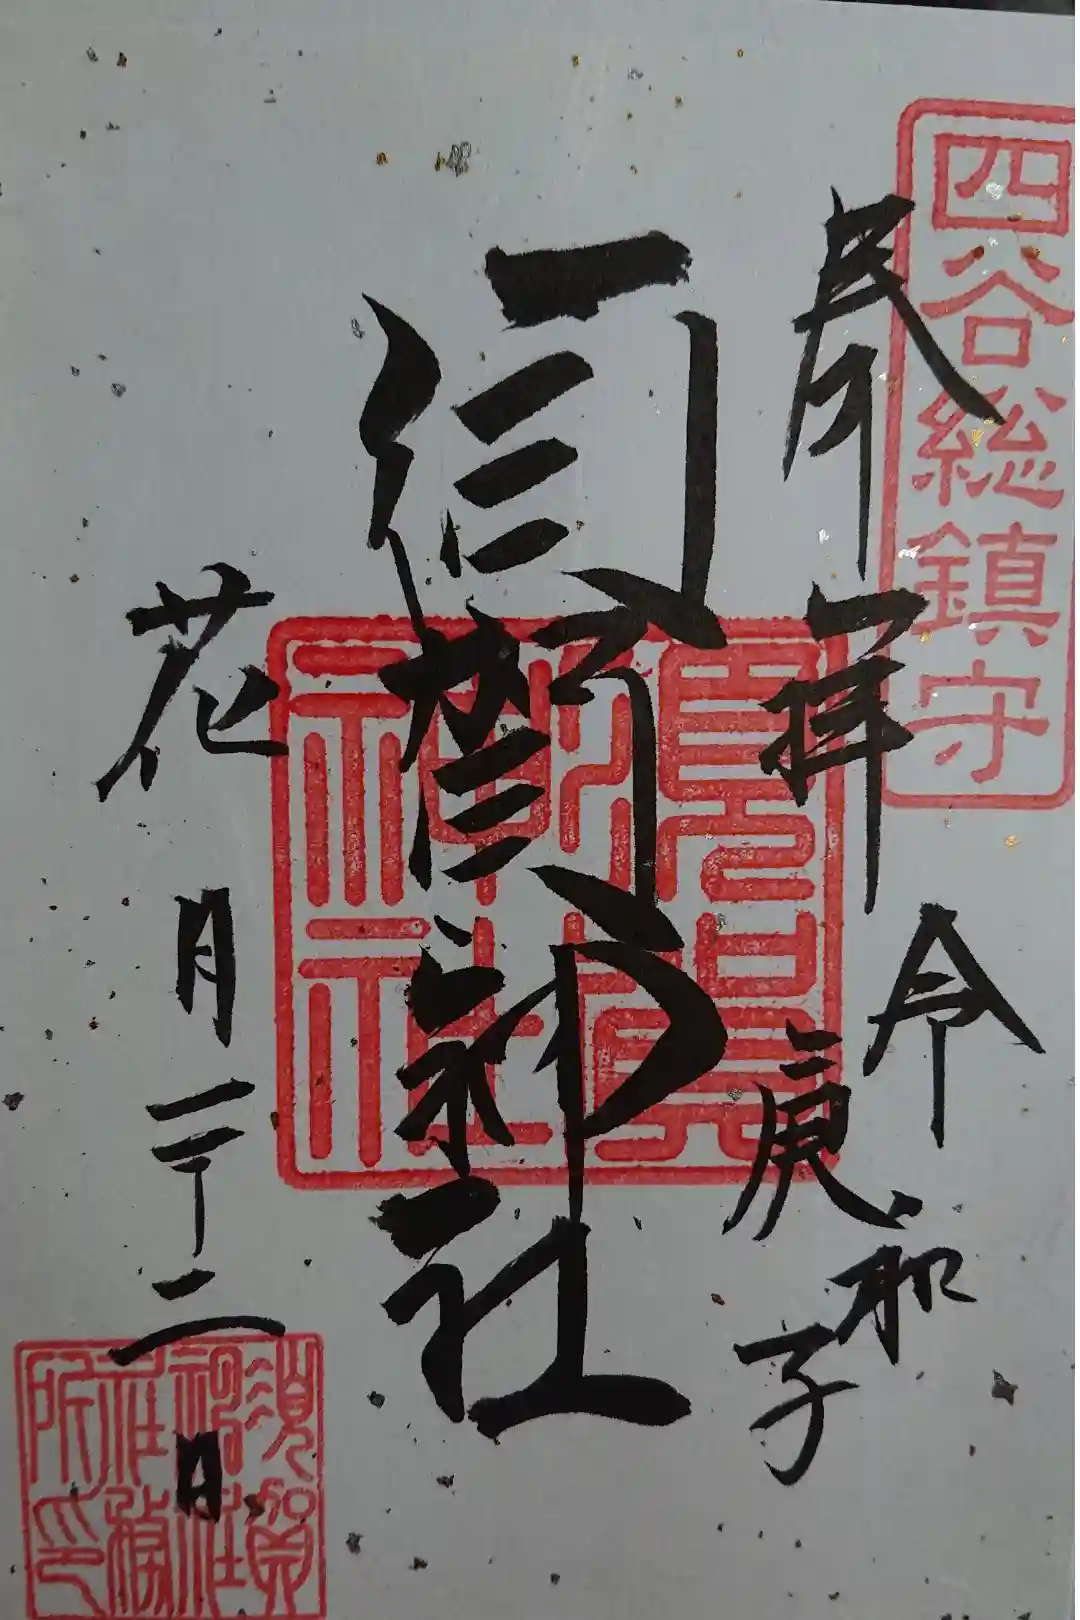 四谷総鎮守
奉拝
令和
庚子
須賀神社
須賀神社
花月二十二日
須賀神社社務所印